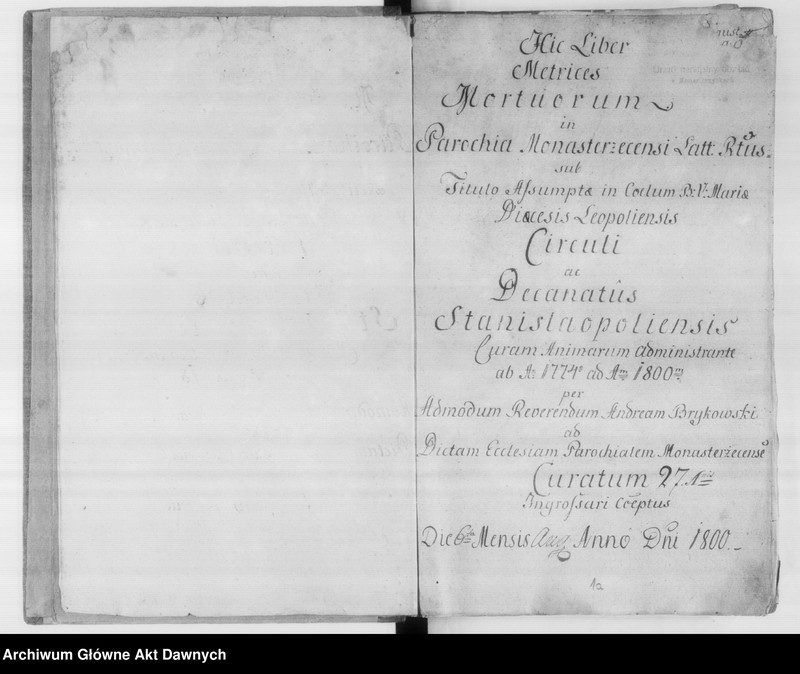 Hic Liber
Metrices
Mortuorum
in
Parochia Monasterzecensi Latt. Rtûs.
sub
Titulo Assumptæ in Coelum B. V. Mariæ
Diæcesis Leopoliensis
Circuli
ac
Decanatûs
Stanislaopoliensis
Curam Animarum administrante
ab Aº 1774º ad Am 1800m
per
Admodum Reverendum Andream Brykowski
ad
Dictam Ecclesiam Parochialem Monasterzecensē
Curatum 27
Ingrossari Cœptus
Die 6ta Mensis Aug Anno Dni 1800.
1a
Archiwum Główne Akt Dawnych